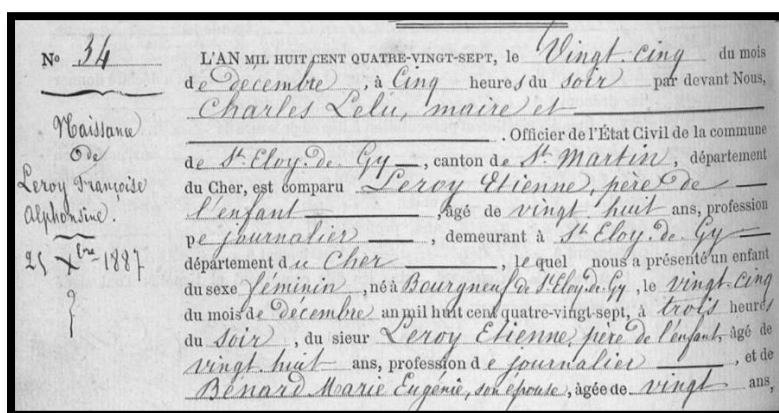 N° 34
Naissance
de
Leroy Françoise
Alphonsine.
25 Xbre 1887
L'AN MIL HUIT CENT QUATRE-VINGT-SEPT, le Vingt-cinq du mois
de décembre, à Cinq heures du soir par devant Nous,
Charles Lelu, maire et
. Officier de l'État Civil de la commune
de St. Eloy. de Gy, canton de St. Martin, département
du Cher, est comparu Leroy Etienne, père de
l'enfant, âgé de vingt huit ans, profession
de journalier, demeurant à St Eloy. de Gy
département du Cher, le quel nous a présenté un enfant
du sexe féminin, né à Bourgneuf de St Eloy de Gy, le vingt-cinq
du mois de décembre an mil huit cent quatre-vingt-sept, à trois heures
du soir, du sieur Leroy Etienne, père de l'enfant, âgé de
vingt. huit ans, profession de journalier, et de
Bénard Marie Eugénie, son épouse, âgée de vingt ans,